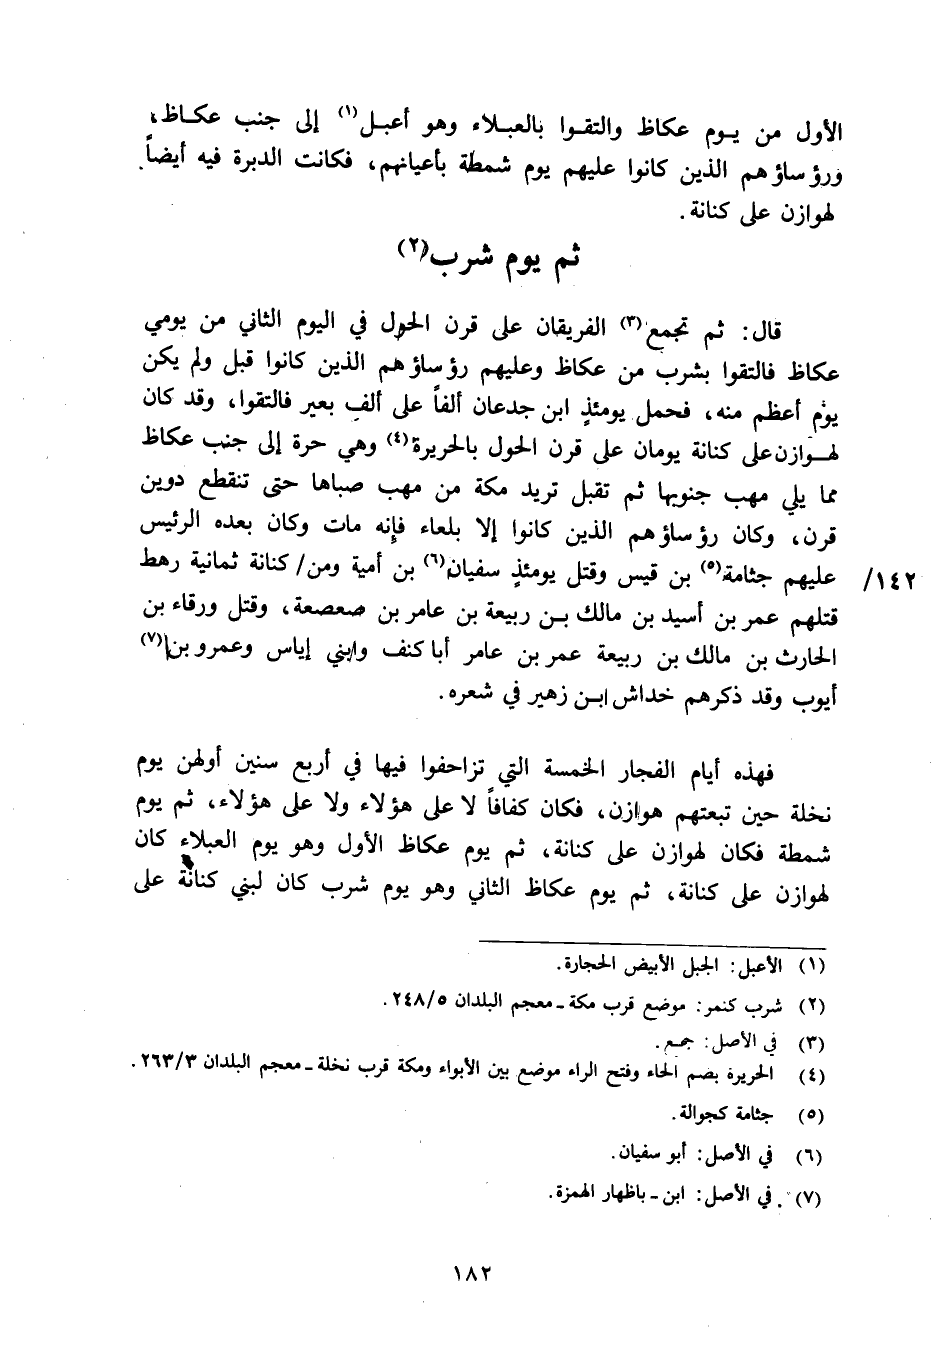 الأول من يوم عكاظ والتقوا بالعبلاء وهو أعبل(١) إلى جنب عكاظ،
ورؤساؤهم الذين كانوا عليهم يوم شمطة بأعيانهم، فكانت الدبرة فيه أيضاً
لهوازن على كنانة.
ثم يوم شرب(٢)
قال: ثم تجمع(٣) الفريقان على قرن الحول في اليوم الثاني من يومي
عكاظ فالتقوا بشرب من عكاظ وعليهم رؤساؤهم الذين كانوا قبل ولم يكن
يوم أعظم منه، فحمل يومئذٍ ابن جدعان ألفاً على ألف بعير فالتقوا، وقد كان
لهوازن على كنانة يومان على قرن الحول بالحريرة(٤) وهي حرة إلى جنب عكاظ
مما يلي مهب جنوبها ثم تقبل تريد مكة من مهب صباها حتى تنقطع دوين
قرن، وكان رؤساؤهم الذين كانوا إلا بلعاء فإنه مات وكان بعده الرئيس
عليهم جثامة(٥) بن قيس وقتل يومئذٍ سفيان(٦) بن أمية ومن/ كنانة ثمانية رهط
١٤٢/
قتلهم عمر بن أسيد بن مالك بن ربيعة بن عامر بن صعصعة، وقتل ورقاء بن
الحارث بن مالك بن ربيعة عمر بن عامر أبا كنف وابني إياس وعمرو بن(٧)
أيوب وقد ذكرهم خداش ابن زهير في شعره.
فهذه أيام الفجار الخمسة التي تزاحفوا فيها في أربع سنين أولهن يوم
نخلة حين تبعتهم هوازن، فكان كفافاً لا على هؤلاء ولا على هؤلاء، ثم يوم
شمطة فكان لهوازن على كنانة، ثم يوم عكاظ الأول وهو يوم العبلاء كان
لهوازن على كنانة، ثم يوم عكاظ الثاني وهو يوم شرب كان لبني كنانة على
(١) الأعبل: الجبل الأبيض الحجارة.
(٢) شرب كنمر: موضع قرب مكة ـ معجم البلدان ٢٤٨/٥.
(٣) في الأصل: جمع.
(٤) الحريرة بضم الحاء وفتح الراء موضع بين الأبواء ومكة قرب نخلة ـ معجم البلدان ٢٦٣/٣.
(٥) جثامة كجوالة.
(٦) في الأصل: أبو سفيان.
(٧) في الأصل: ابن ـ باظهار الهمزة.
١٨٢